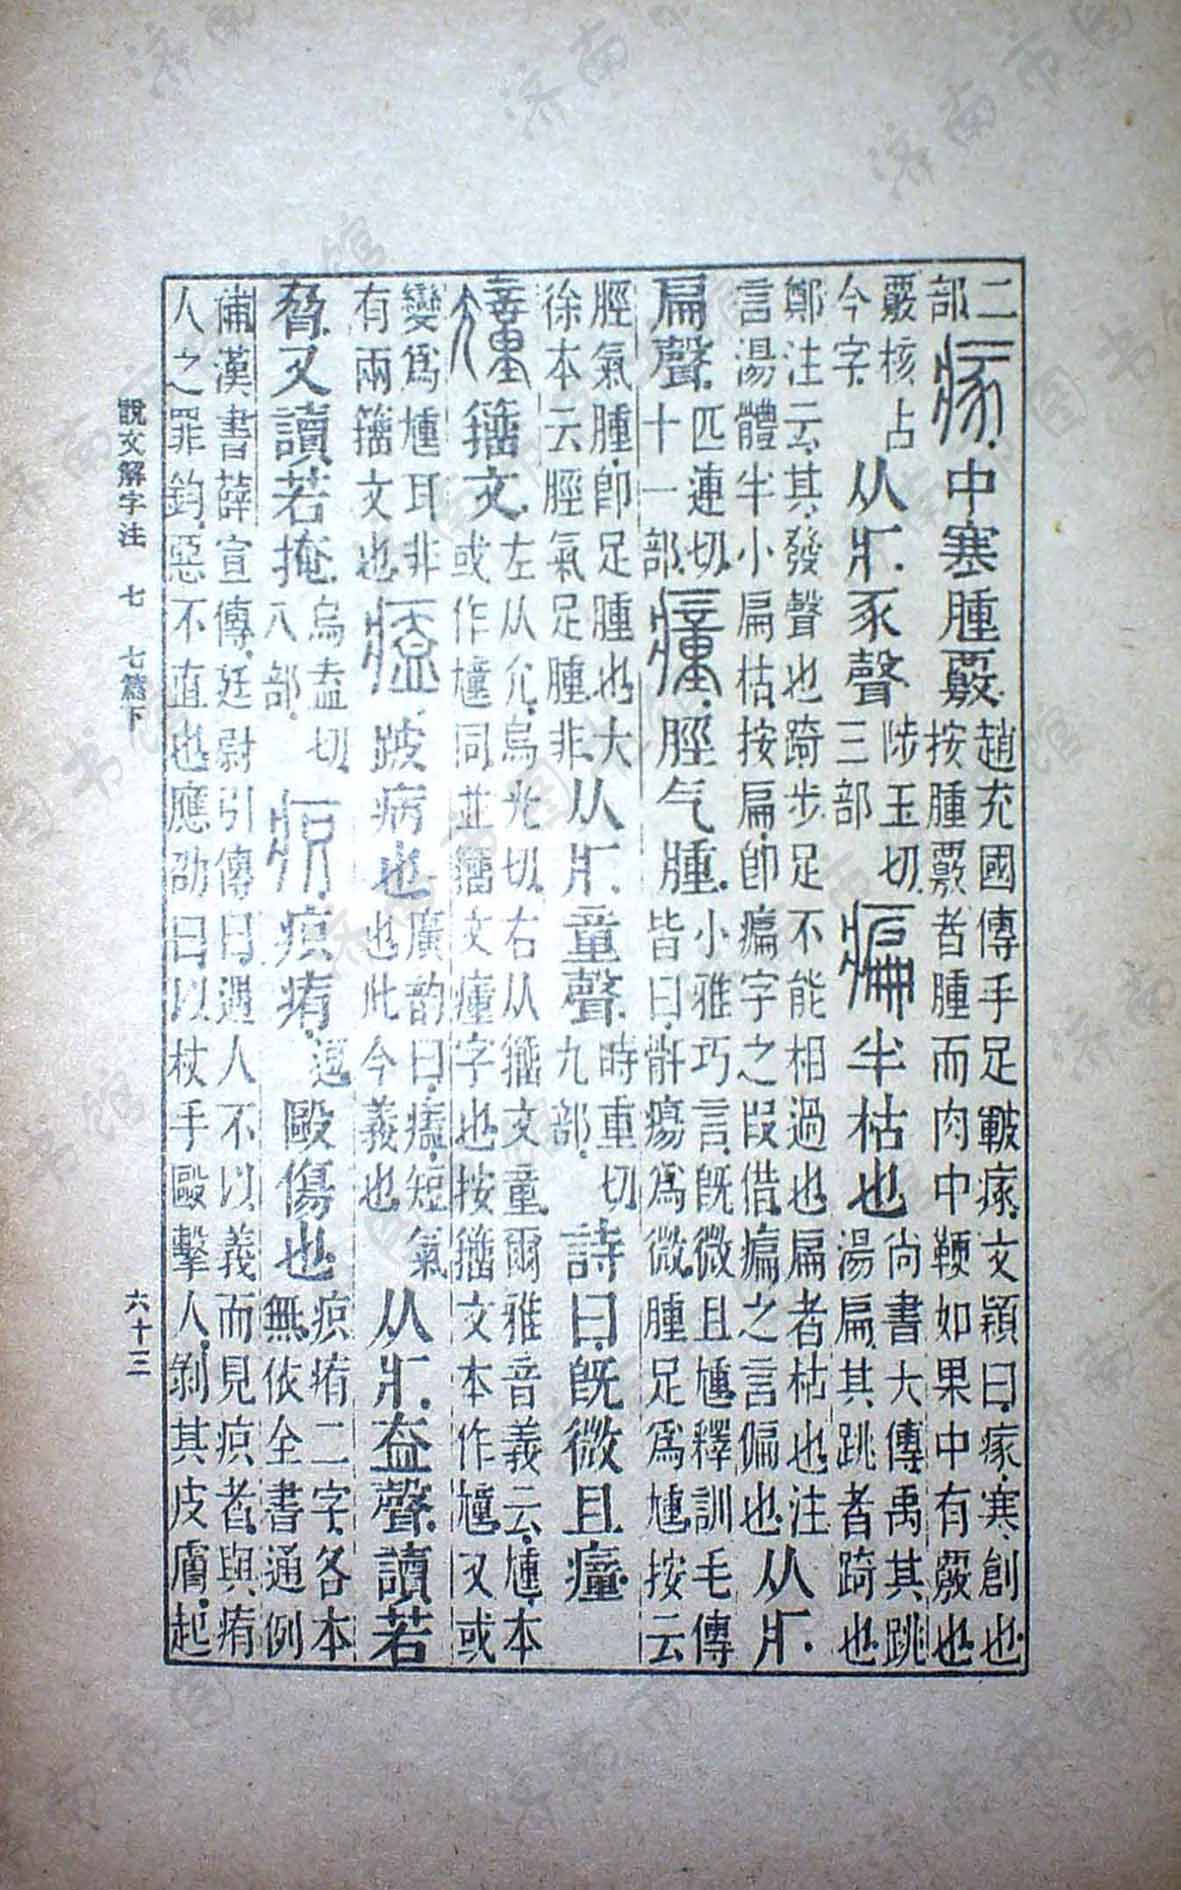 二部 瘃 中寒腫覈 趙充國傳手足皸瘃文穎曰瘃寒創也按腫覈者腫而肉中鞕如果中有覈也
覈核古今字 从疒豖聲 陟玉切三部 㾫 半枯也 尚書大傳禹其跳湯扁其跳者踦也
鄭注云其發聲也踦步足不能相過也扁者枯也注言湯體半小扁枯按扁卽㾫字之叚借㾫之言偏也 从疒
扁聲 匹連切十一部 瘇 脛气腫 小雅巧言旣微且尰釋訓毛傳皆曰骭瘍爲微腫足爲尰按云
脛氣腫卽足腫也大徐本云脛氣足腫非 从疒童聲 時重切九部 詩曰旣微且瘇
籒文 左从允烏光切右从籒文童爾雅音義云尰本或作同並籒文瘇字也按籒文本作又或
變爲尰耳非有兩籒文也 㾑 跛病也 廣韵曰㾑短氣也此今義也 从疒盍聲讀若
脅又讀若掩 烏盍切八部 疻 疻痏 逗 毆傷也 疻痏二字各本無依全書通例
補漢書薛宣傳廷尉引傳曰遇人不以義而見疻者與痏人之罪鈞惡不直也應劭曰以杖手毆擊人剝其皮膚起
說文解字注 七 七篇下 六十三